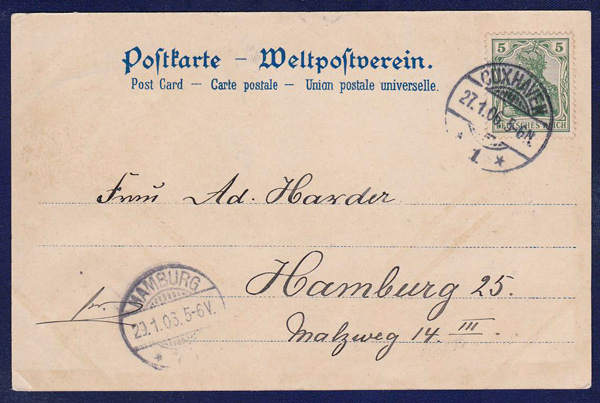 Postkarte — Weltpostverein.
Post Card — Carte postale — Union postale universelle.
5 5
DEUTSCHES REICH
CUXHAVEN
27.1.06. 5-6N.
* 1 *
Frau Ad. Harder
Hamburg 25.
Malzweg 14. III.
HAMBURG
29.1.06. 5-6V.